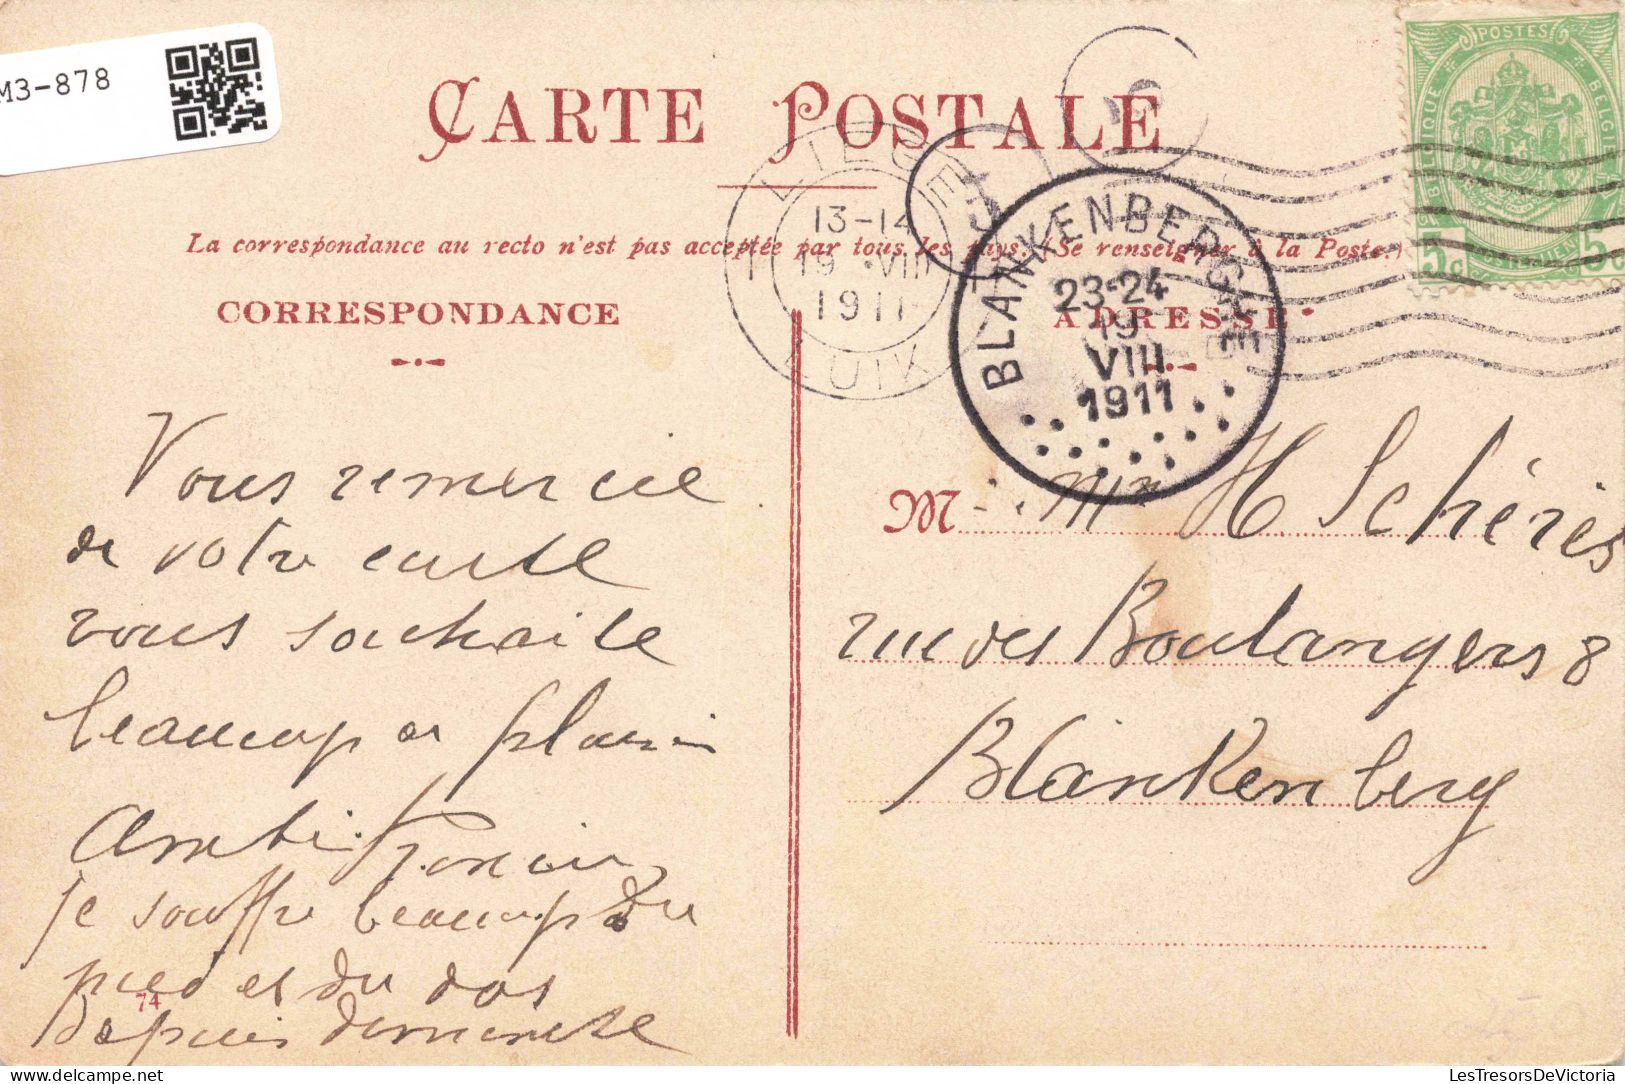 M3-878
CARTE POSTALE
POSTES
BELGIQUE
BELGIE
5c
5c
LIEGE
13-14
19 VIII
1911
LUIK
La correspondance au recto n'est pas acceptée par tous les pays. (Se renseigner à la Poste.)
CORRESPONDANCE
ADRESSE
BLANKENBERGHE
23-24
19
VIII
1911
Vous remercie
de votre carte
vous souhaite
beaucoup de plaisir
je souffre beaucoup du
pied et du dos
depuis
74
M
Mr H Schérès
rue des Boulangers 8
Blankenberg
LesTresorsDeVictoria.com